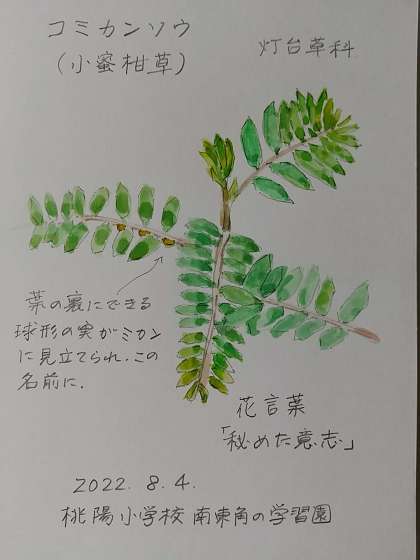 コミカンソウ
(小蜜柑草)
灯台草科
葉の裏にできる
球形の実がミカン
に見立てられ、この
名前に.
花言葉
「秘めた意志」
2022. 8. 4.
桃陽小学校 南東角の学習園